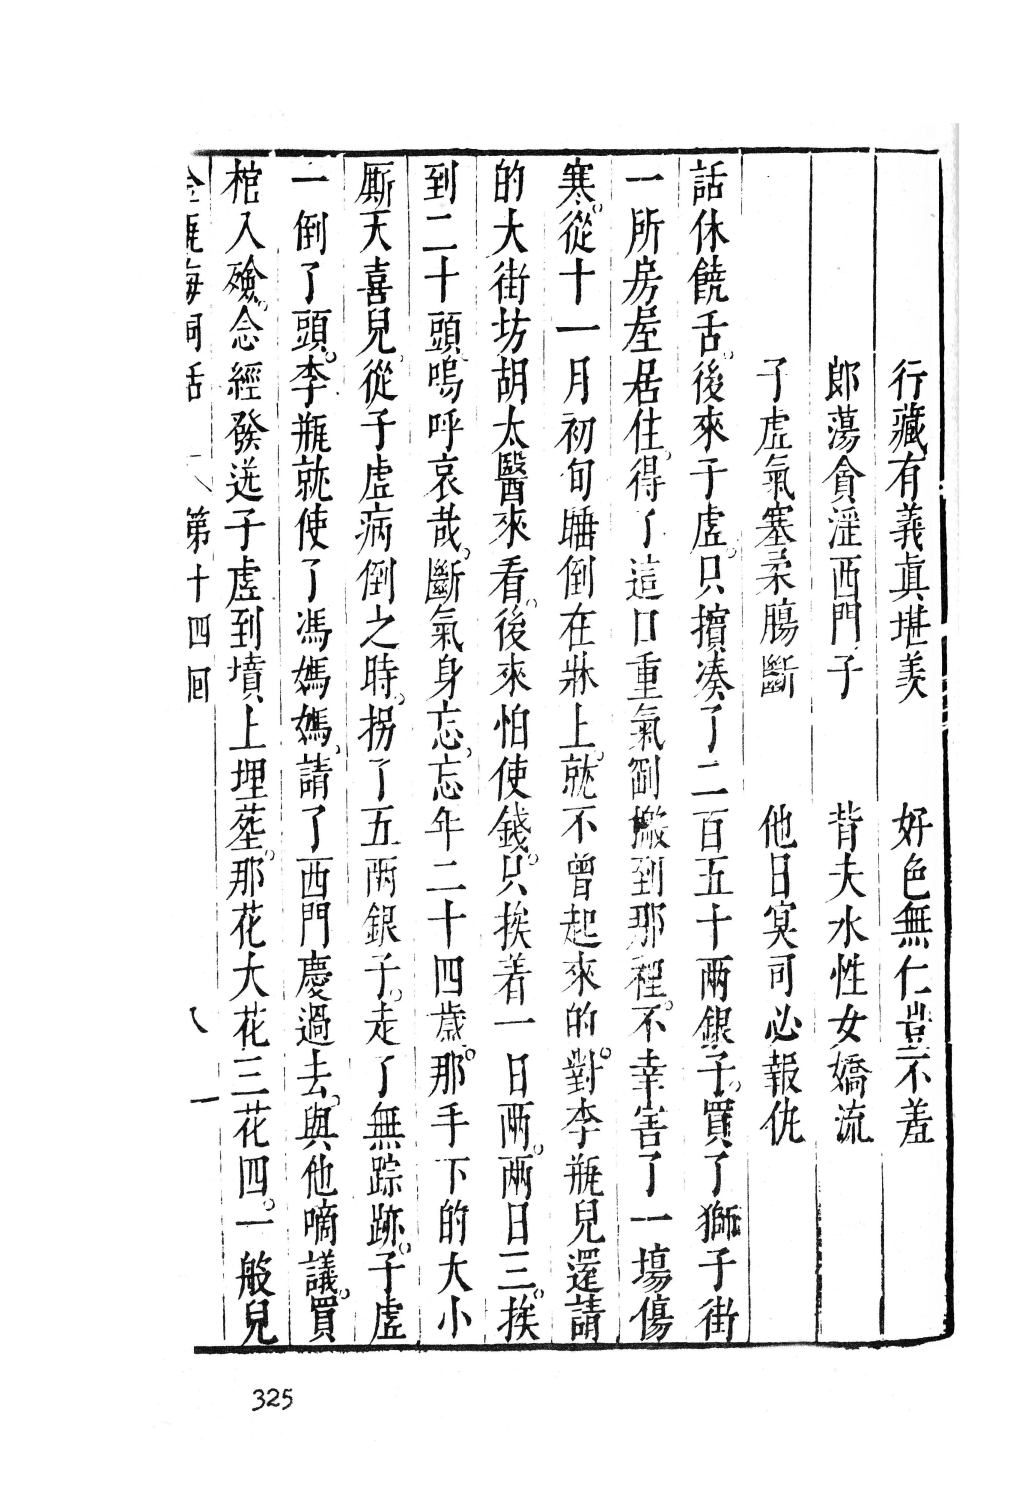 行藏有義真堪羨　好色無仁豈不羞
郎蕩貪淫西門子　背夫水性女嬌流
子虛氣塞柔腸斷　他日冥司必報仇
話休饒舌。後來子虛。只擯湊了二百五十兩銀子。買了獅子街
一所房屋居住。得了這口重氣。剛搬到那裡。不幸害了一場傷
寒。從十一月初旬睡倒在牀上。就不曾起來的。對李瓶兒還請
的大街坊胡太醫來看。後來怕使錢。只挨着一日兩。兩日三。挨
到二十頭。嗚呼哀哉。斷氣身忘。忘年二十四歲。那手下的大小
厮天喜兒。從子虛病倒之時。拐了五兩銀子。走了無踪跡。子虛
一倒了頭。李瓶就使了馮媽媽。請了西門慶過去。與他啇議。買
棺入殮。念經發送。子虛到墳上埋塟。那花大花三花四。一般兒
金瓶梅詞話　第十四回　八
325